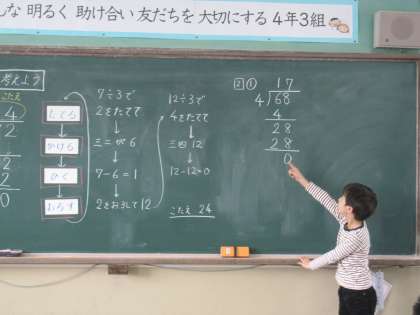 な 明るく 助け合い 友だちを 大切にする 4年3組
考えよう
こたえ
4
12
12
0
たてる
かける
ひく
おろす
7÷3で
2をたてて
↓
三二が6
↓
7-6=1
↓
2をおろして12
12÷3で
4をたてて
↓
三四12
↓
12-12=0
こたえ 24
2 ① 17
4)68
4
28
28
0